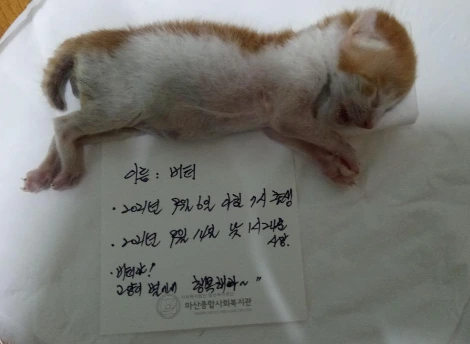 이름 : 버터
· 2021년 9월 6일 7시 출생
· 2021년 9월 14일 낮 1시 24분
사망.
· 버터야!
고양이 별에서 행복해라~"
마산종합사회복지관